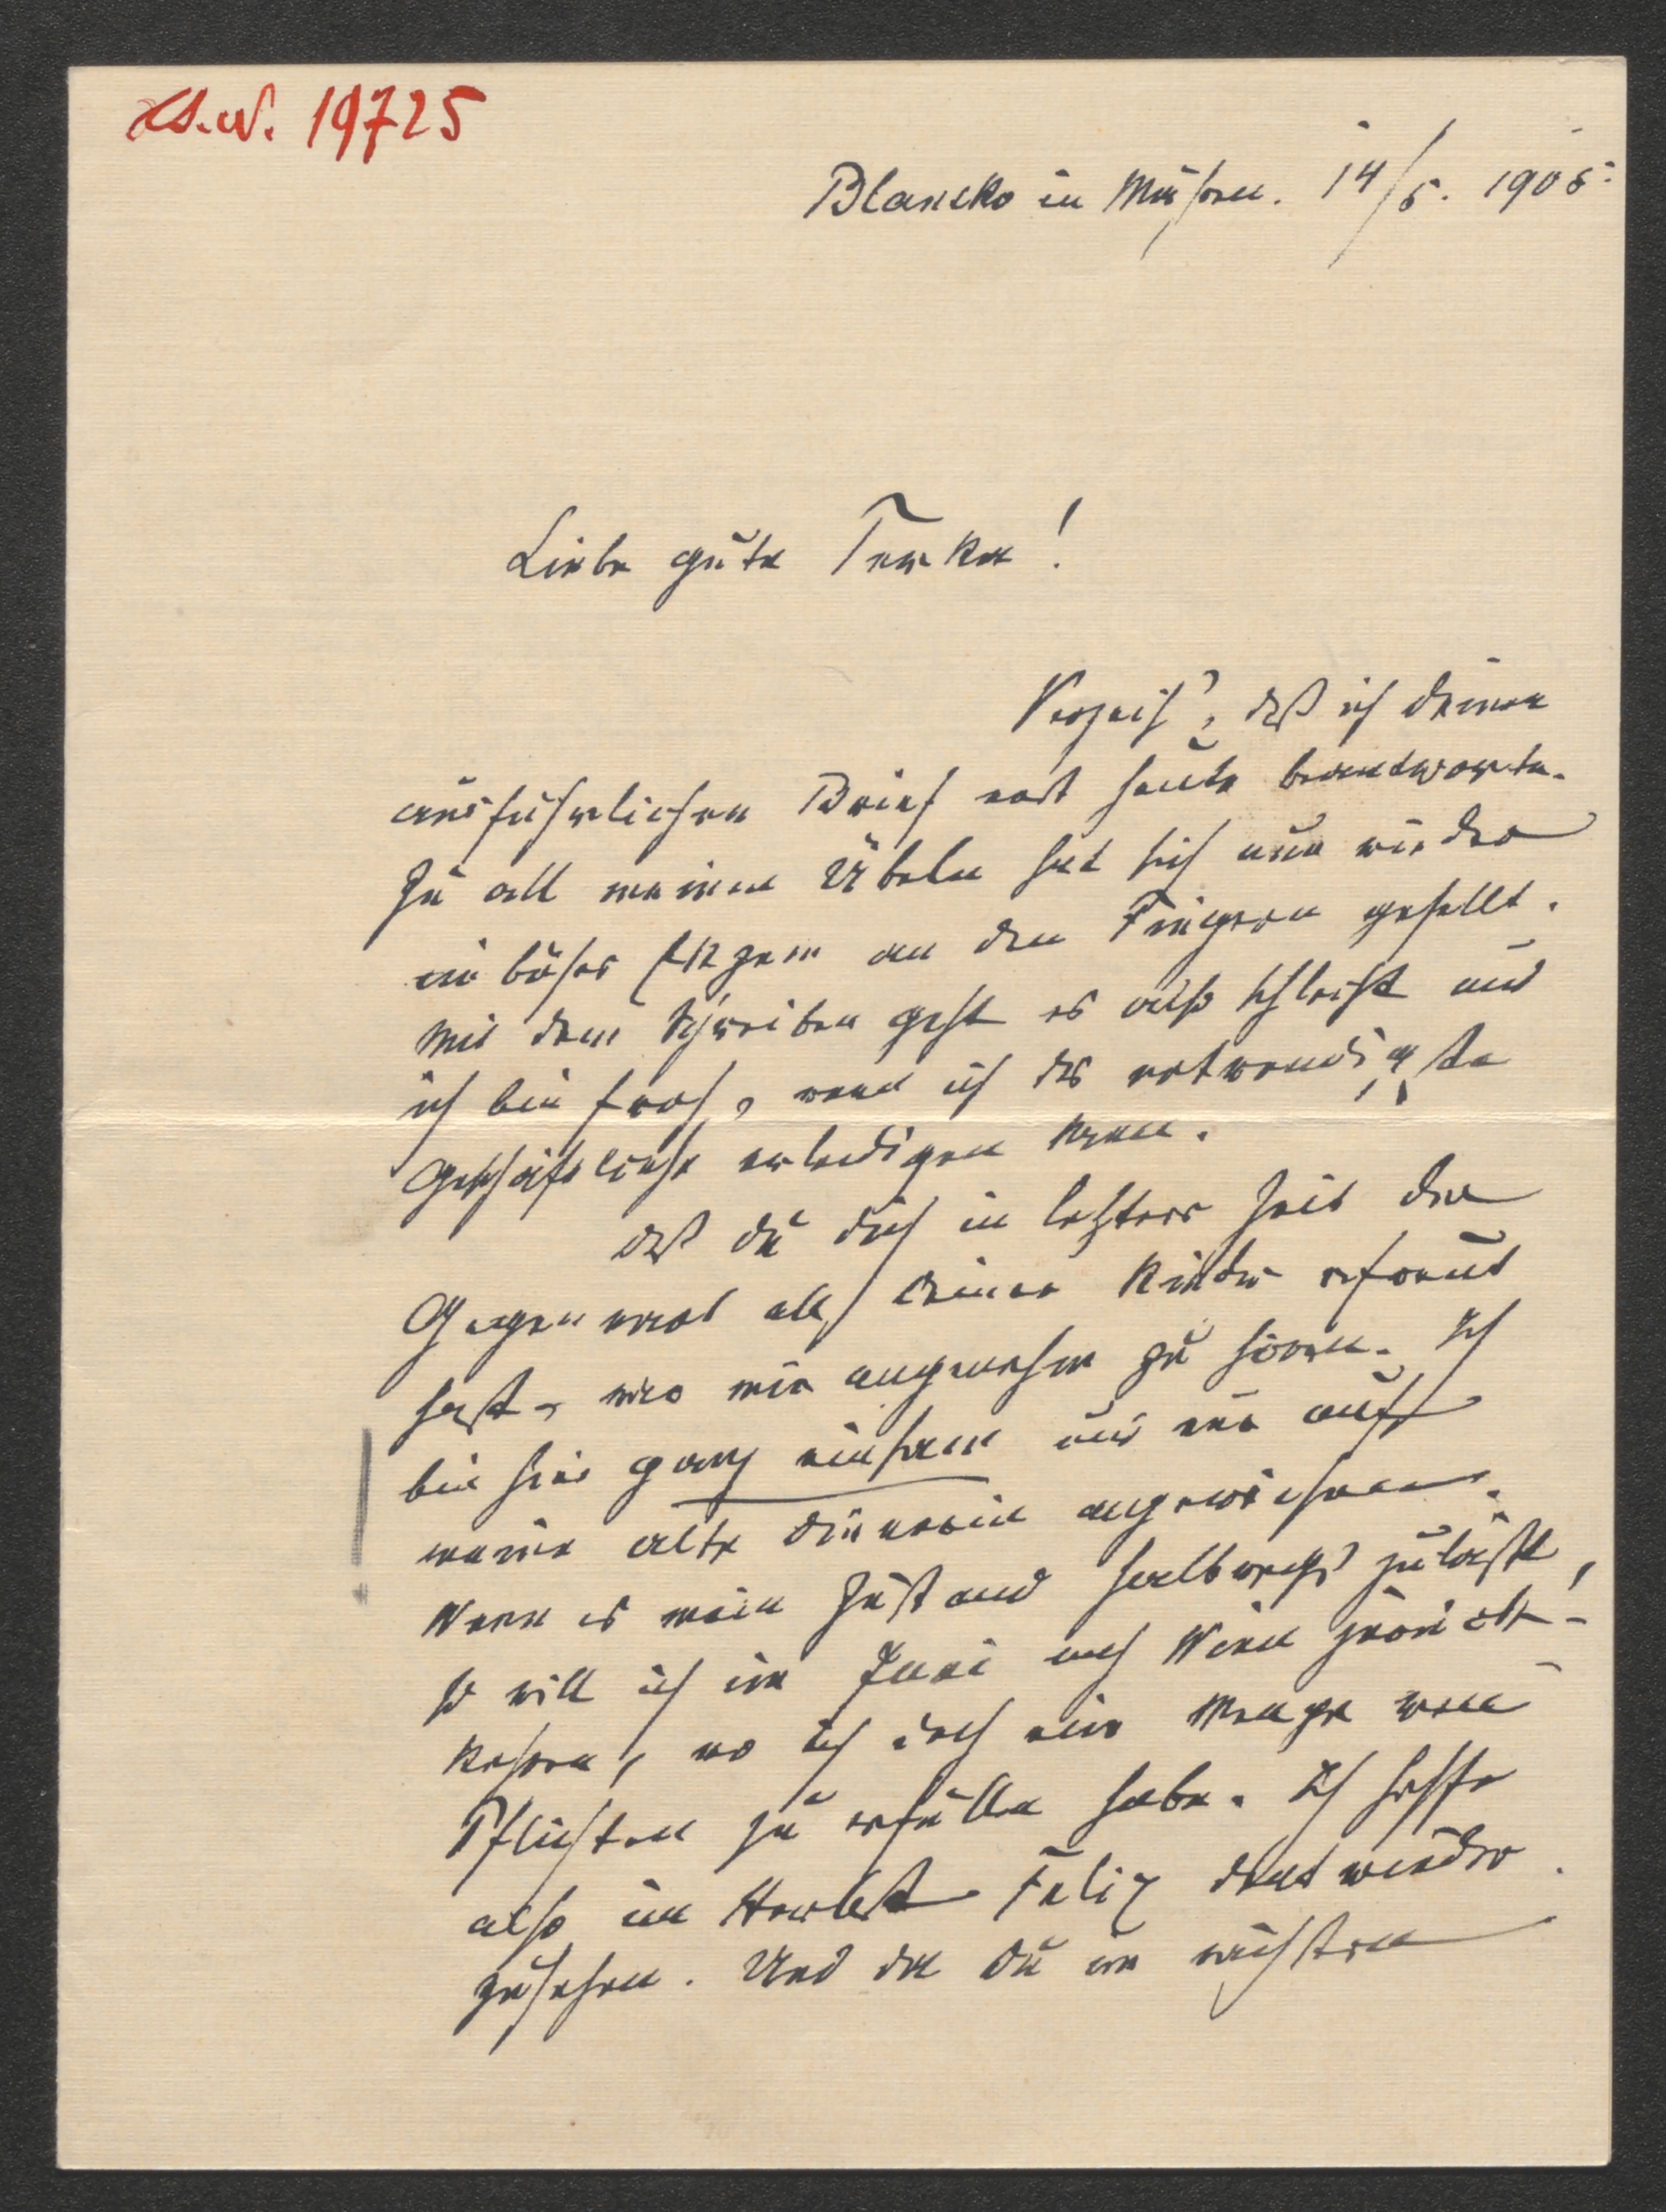 19725
Blansko in Mähren. 14/5. 1905.
Liebe gute Terka!
Verzeih', daß ich deinen
ausführlichen Brief erst heute beantworte.
Zu all meinen Übeln hat sich nun wieder
ein böses Ekzem an den Fingern gesellt.
Mit dem Schreiben geht es also schlecht und
ich bin froh, wenn ich das notwendigste
Geschäftliche erledigen kann.
Daß du dich in letzter Zeit der
Gegenwart all deiner Kinder erfreut
hast, war mir angenehm zu hören. Ich
bin hier ganz einsam und nur auf
meine alte Dienerin angewiesen.
Wenn es mein Zustand halbwegs zuläßt,
so will ich im Juni nach Wien zurück-
kehren, wo ich doch eine Menge von
Pflichten zu erfüllen habe. Ich hoffe
also im Herbst Felix dort wieder
zusehen. Und da du im nächsten